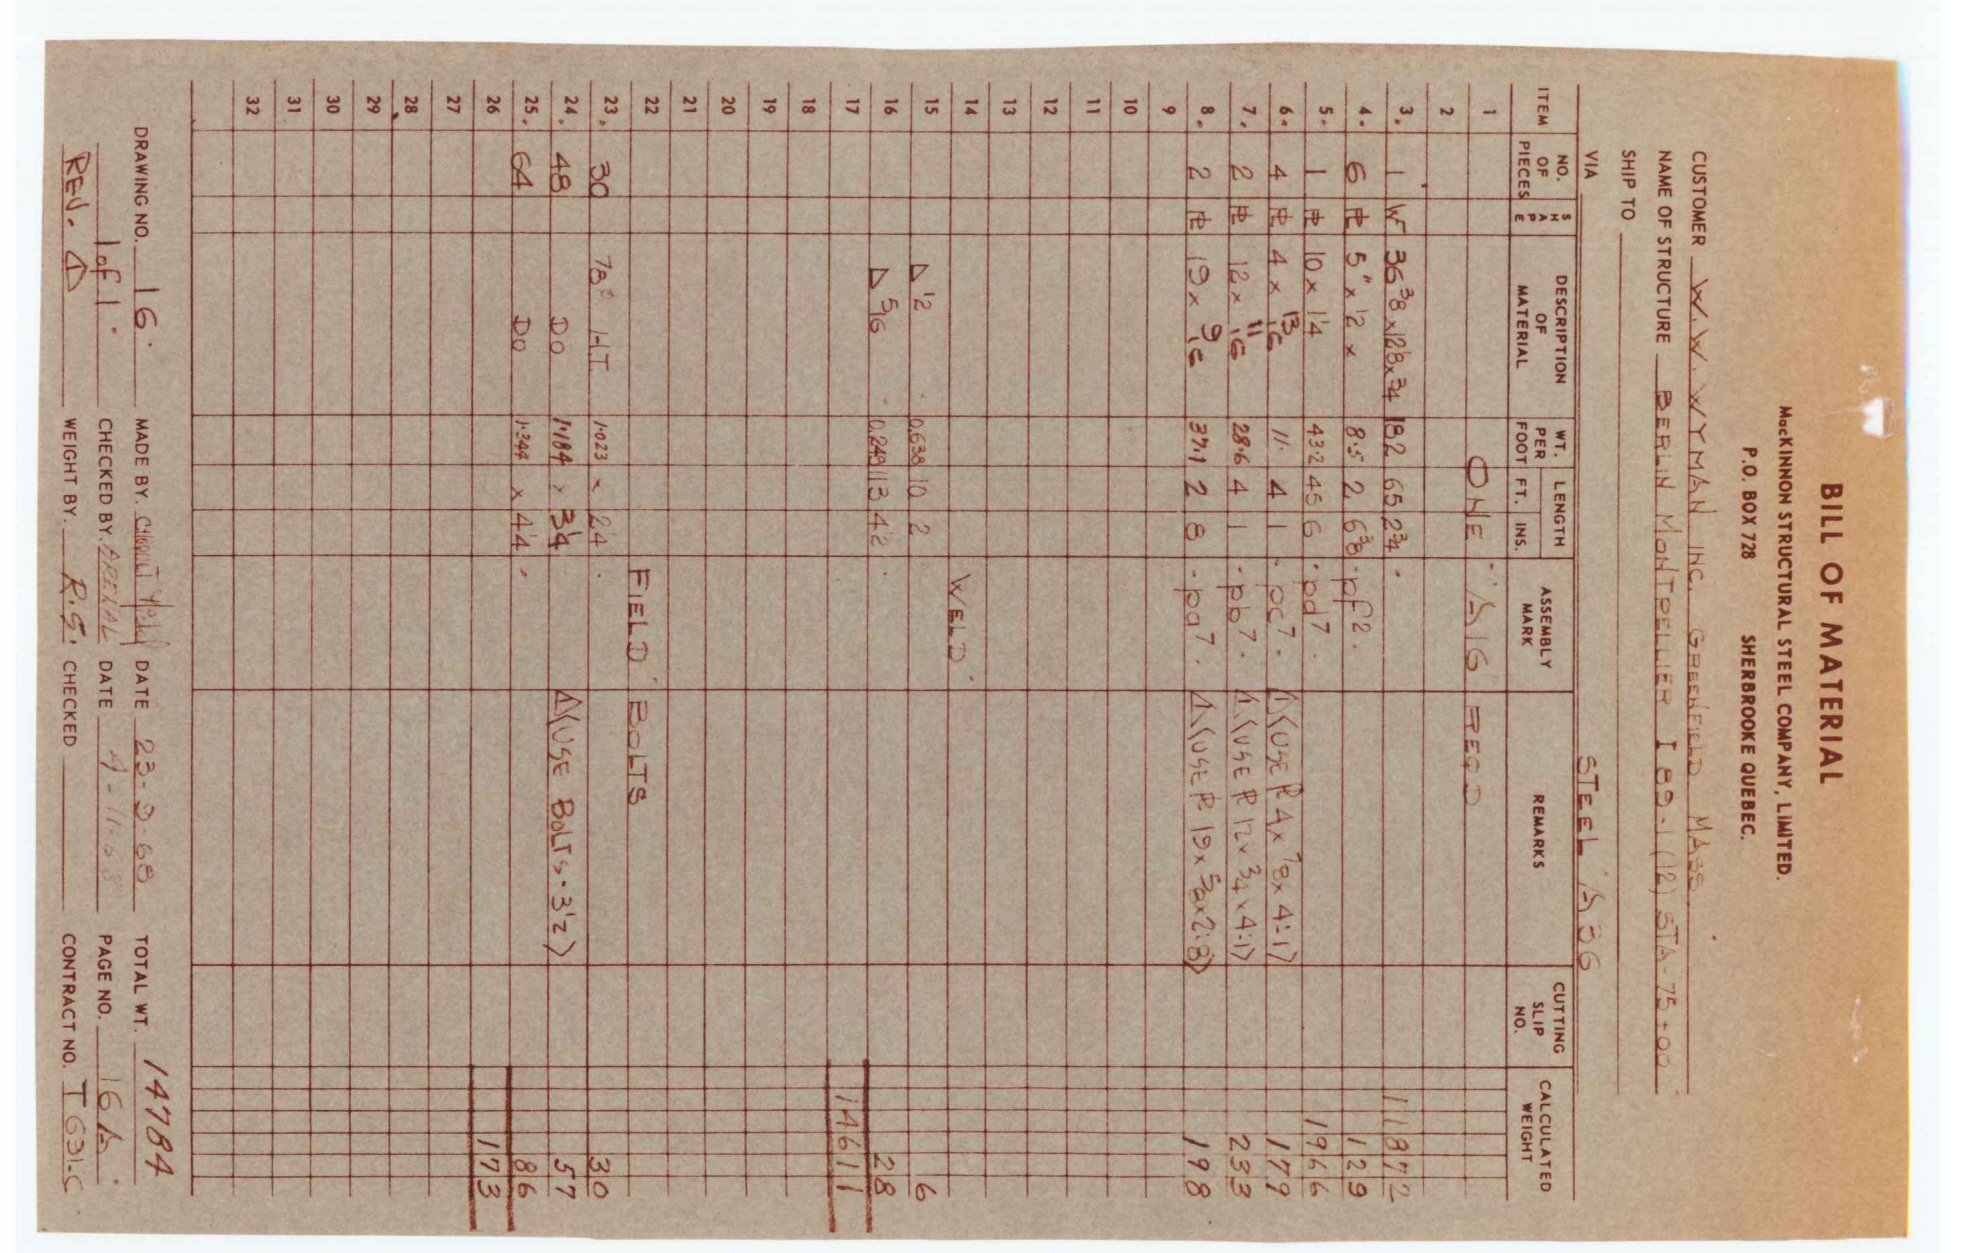 BILL OF MATERIAL
MacKINNON STRUCTURAL STEEL COMPANY, LIMITED.
P.O. BOX 728 SHERBROOKE QUEBEC.
CUSTOMER W.W. WYMAN INC. GREENFIELD MASS
NAME OF STRUCTURE BERLIN MONTPELLIER I 89-1(12) STA-75+00
SHIP TO
VIA STEEL A36
ITEM NO. OF PIECES SHAPE DESCRIPTION OF MATERIAL WT. PER FOOT LENGTH FT. INS. ASSEMBLY MARK REMARKS CUTTING SLIP NO. CALCULATED WEIGHT
1 ONE "A16" REQD
2
3. 1 W 36 3/8 x 12 1/8 x 3/4 182 65 2 3/4 11872
4. 6 PL 5" x 1/2 x 8.5 2 6 3/8 pf2. 129
5. 1 PL 10 x 1 1/4 43.2 45 6 pd7. 1966
6. 4 PL 4 x 13/16 11. 4 1 pc7. Δ(USE PL 4 x 7/8 x 4:1) 179
7. 2 PL 12 x 11/16 28.6 4 1 pb7. Δ(USE PL 12 x 3/4 x 4:1) 233
8. 2 PL 19 x 9/16 37.1 2 8 pa7. Δ(USE PL 19 x 5/8 x 2:8) 198
9
10
11
12
13
14 WELD
15 Δ 1/2 0.638 10 2 6
16 Δ 5/16 0.249 113 4 1/2 28
17 14611
18
19
20
21
22 FIELD BOLTS
23. 30 7/8 HT 1.023 x 2 1/4 30
24. 48 DO 1.184 x 3 1/4 Δ(USE BOLTS-3 1/2) 57
25. 64 DO 1.344 x 4 1/4 86
26 173
27
28
29
30
31
32
DRAWING NO. 16 MADE BY. DATE 23-9-68 TOTAL WT. 14784
1 of 1 CHECKED BY. DATE 4-11-68 PAGE NO. 16A
REV. Δ WEIGHT BY. R.G. CHECKED CONTRACT NO. T631-C